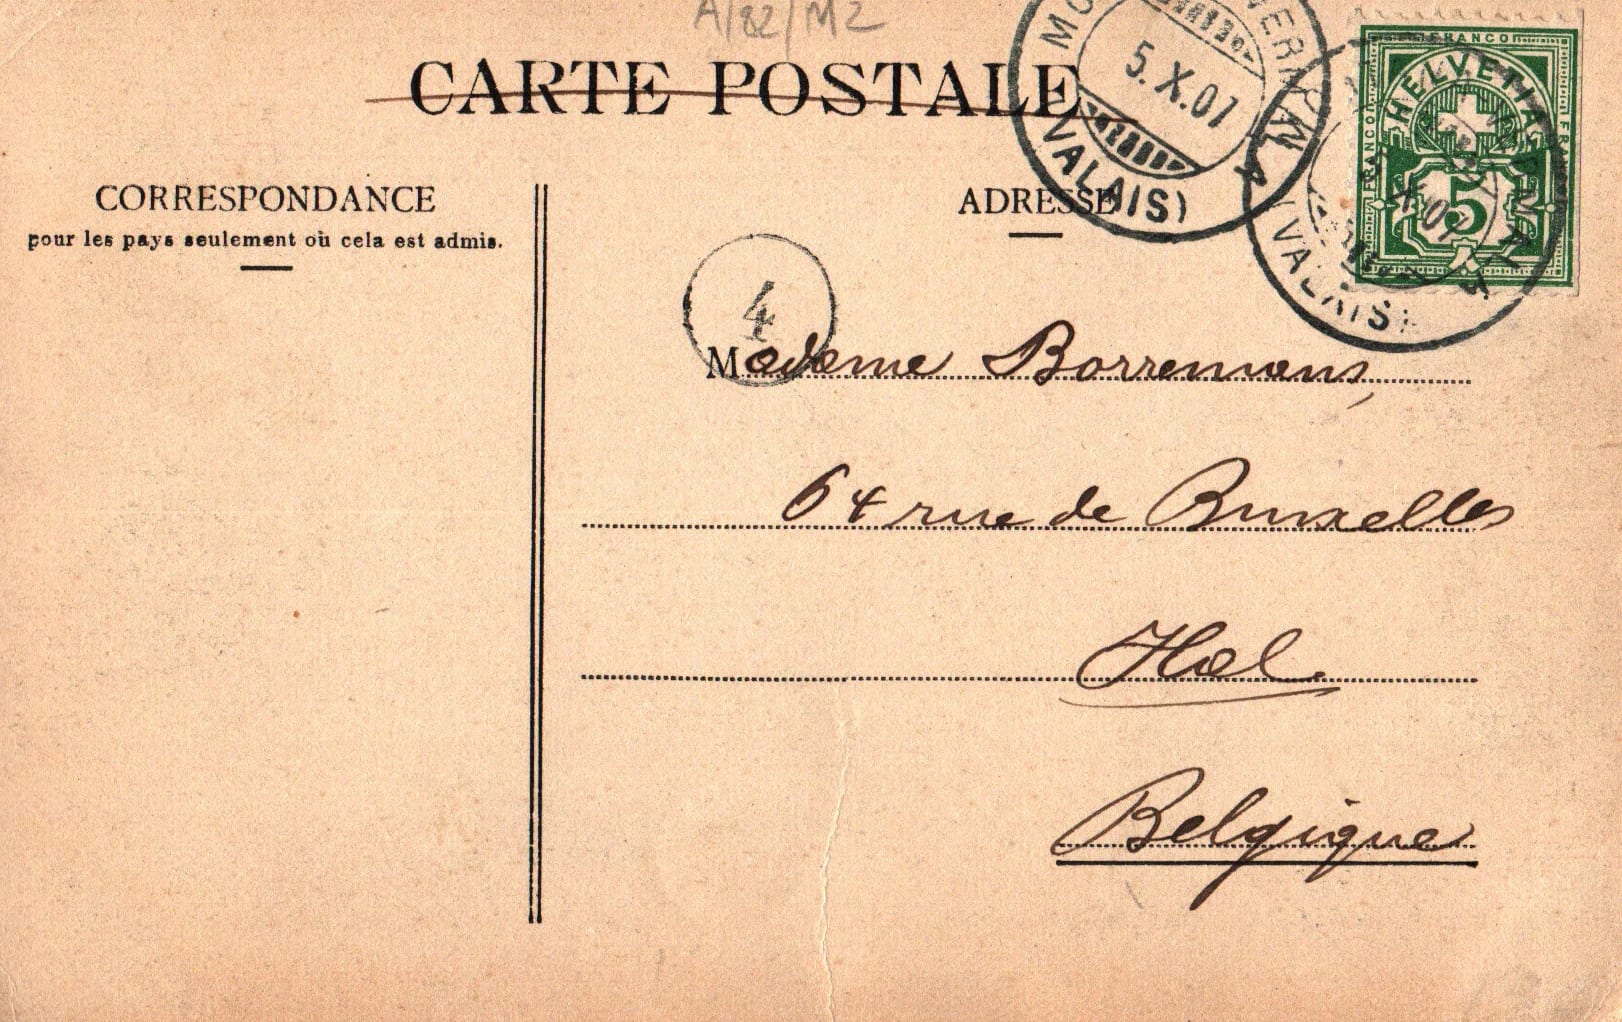 A/82/M2
CARTE POSTALE
5.X.07
(VALAIS)
FRANCO
HELVETIA
FRANCO
FRANCO
5
X.07
(VALAIS)
CORRESPONDANCE
pour les pays seulement où cela est admis.
ADRESSE
4
Madame Borremans,
64 rue de Bruxelles
Hal
Belgique